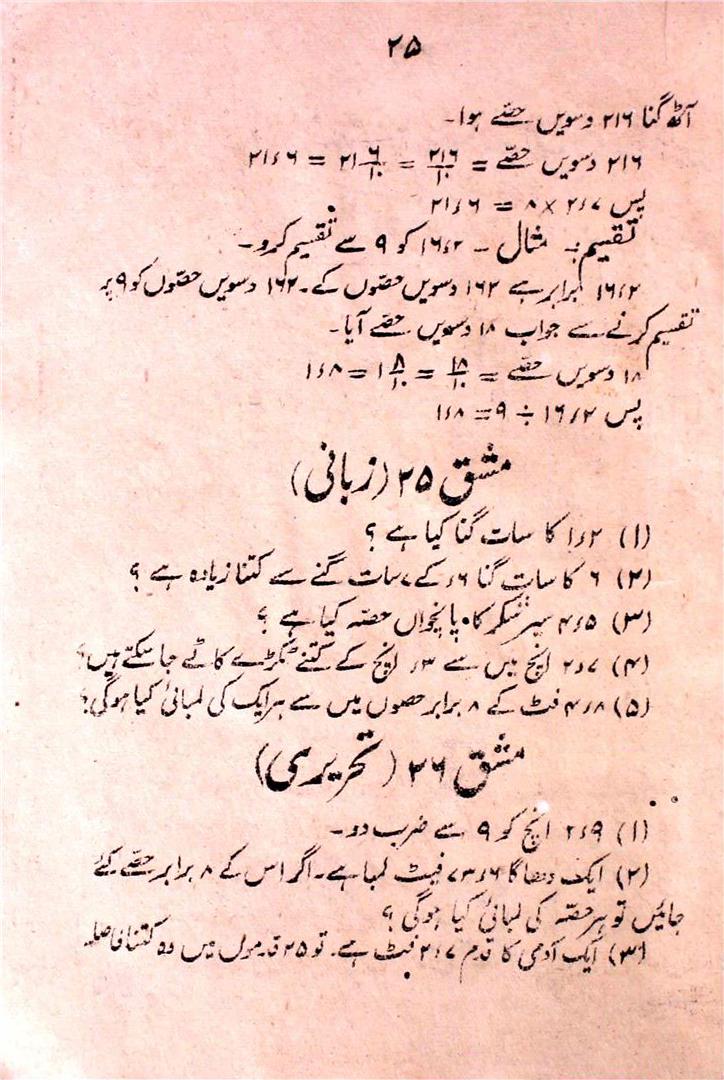 ۲۵
آٹھ گنا ۲۱۶ دسویں حصّے ہوا۔
۲۱۶ دسویں حصّے = ۲۱۶/۱۰ = ۲۱ ۶/۱۰ = ۲۱ء۶
پس ۲ء۷ × ۸ = ۲۱ء۶
تقسیم:۔ مثال ۔ ۱۶ء۲ کو ۹ سے تقسیم کرو۔
۱۶ء۲ برابر ہے ۱۶۲ دسویں حصّوں کے۔ ۱۶۲ دسویں حصّوں کو ۹ پر
تقسیم کرنے سے جواب ۱۸ دسویں حصّے آیا۔
۱۸ دسویں حصّے = ۱۸/۱۰ = ۱ ۸/۱۰ = ۱ء۸
پس ۱۶ء۲ ÷ ۹ = ۱ء۸
مشق ۲۵ (زبانی)
(۱) ۱ء۲ کا سات گنا کیا ہے ؟
(۲) ۶ کا سات گنا ء۶ کے سات گنے سے کتنا زیادہ ہے ؟
(۳) ۴ء۵ سیر شکر کا پانچواں حصّہ کیا ہے ؟
(۴) ۲ء۷ انچ میں سے ء۳ انچ کے کتنے ٹکڑے کاٹے جا سکتے ہیں؟
(۵) ۴ء۸ فٹ کے ۸ برابر حصوں میں سے ہر ایک کی لمبائی کیا ہوگی؟
مشق ۲۶ (تحریری)
(۱) ۲ء۹ انچ کو ۹ سے ضرب دو۔
(۲) ایک دھاگا ۷۳ء۶ فیٹ لمبا ہے۔ اگر اس کے ۸ برابر حصّے کئے
جائیں تو ہر حصّہ کی لمبائی کیا ہوگی ؟
(۳) ایک آدمی کا قدم ۲ء۷ فیٹ ہے۔ تو ۲۵ قدموں میں وہ کتنا فاصلہ